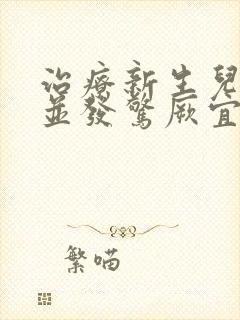 治療新生兒
並發驚厥宜
繁喵